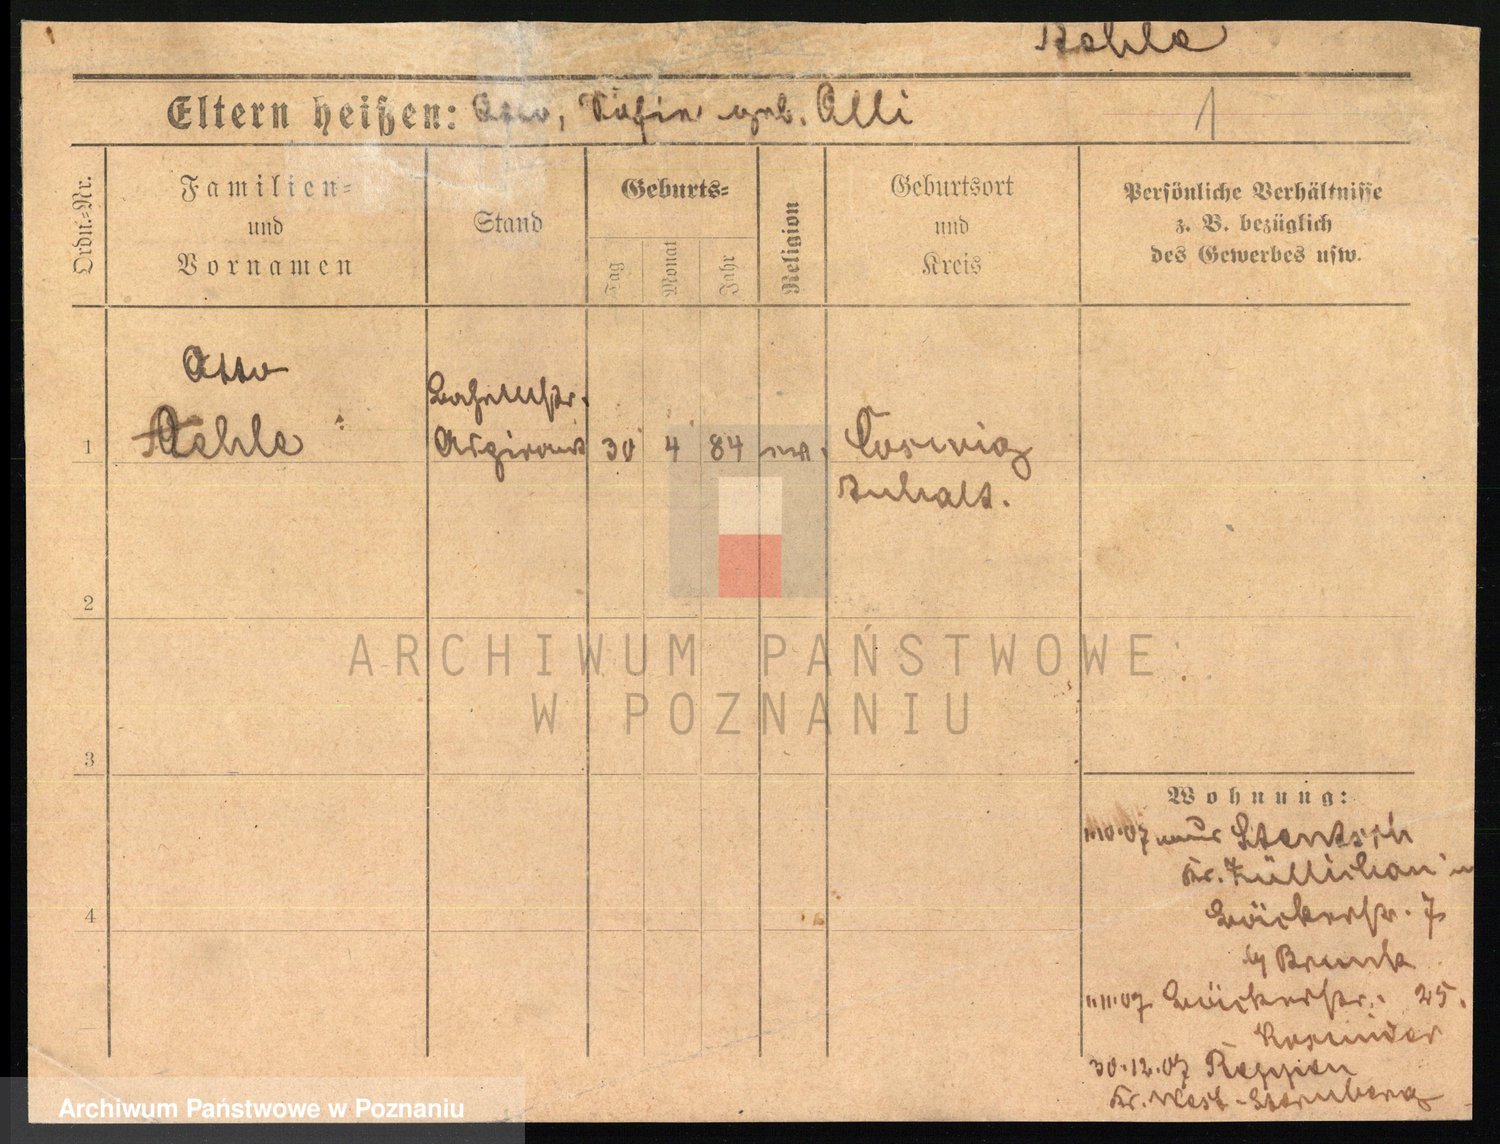 Eltern heißen: Otto, Sofie geb. Olli
1
Ordn.-Nr.
Familien-
und
Vornamen
Stand
Geburts-
Tag
Monat
Jahr
Religion
Geburtsort
und
Kreis
Persönliche Verhältnisse
z. B. bezüglich
des Gewerbes usw.
Otto
1 Oehle
Aspirant 30 4 84 ev. Coswig
Anhalt.
2
3
4
Wohnung:
1.10.07 aus Stentsch
Kr. Züllichau in
Bäckerstr. 7
by Brunk
1.11.07 Bäckerstr. 25.
30.12.07 Reppen
Kr. West-Sternberg
ARCHIWUM PAŃSTWOWE
W POZNANIU
Archiwum Państwowe w Poznaniu